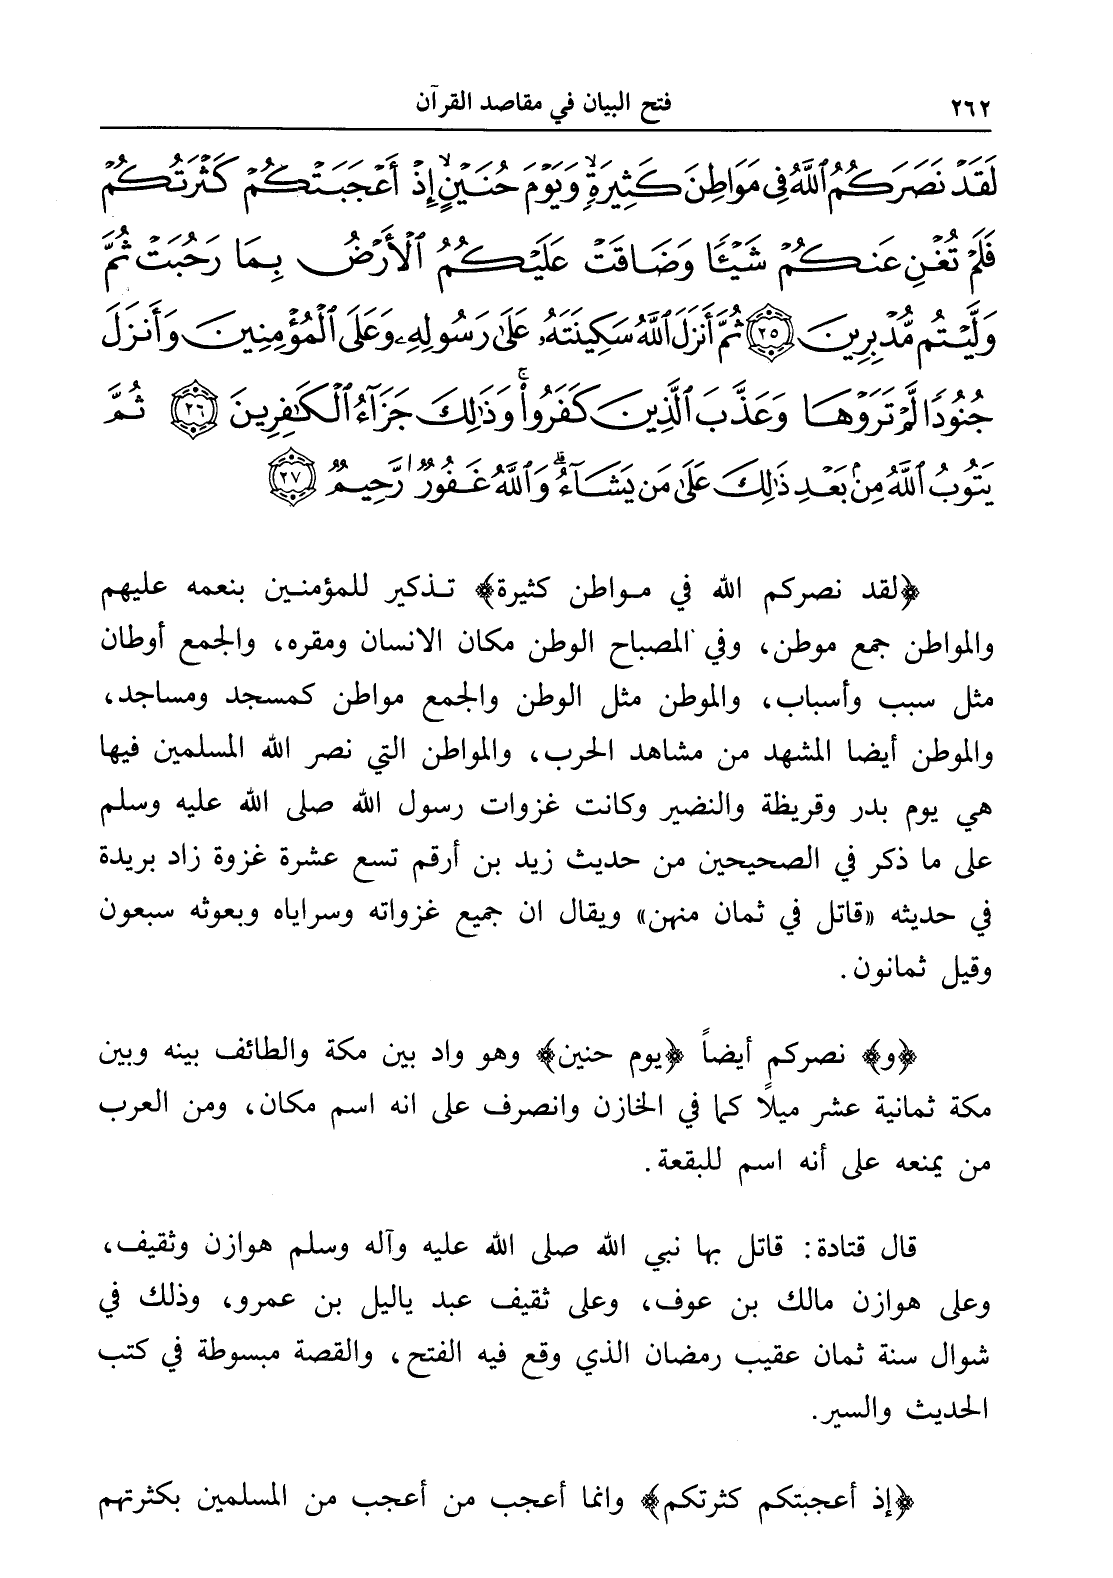 ٢٦٢ فتح البيان في مقاصد القرآن
لَقَدْ نَصَرَكُمُ ٱللَّهُ فِى مَوَاطِنَ كَثِيرَةٍۙ وَيَوْمَ حُنَيْنٍۙ إِذْ أَعْجَبَتْكُمْ كَثْرَتُكُمْ
فَلَمْ تُغْنِ عَنكُمْ شَيْـًٔا وَضَاقَتْ عَلَيْكُمُ ٱلْأَرْضُ بِمَا رَحُبَتْ ثُمَّ
وَلَّيْتُم مُّدْبِرِينَ ﴿٢٥﴾ ثُمَّ أَنزَلَ ٱللَّهُ سَكِينَتَهُۥ عَلَىٰ رَسُولِهِۦ وَعَلَى ٱلْمُؤْمِنِينَ وَأَنزَلَ
جُنُودًا لَّمْ تَرَوْهَا وَعَذَّبَ ٱلَّذِينَ كَفَرُوا۟ۚ وَذَٰلِكَ جَزَآءُ ٱلْكَٰفِرِينَ ﴿٢٦﴾ ثُمَّ
يَتُوبُ ٱللَّهُ مِنۢ بَعْدِ ذَٰلِكَ عَلَىٰ مَن يَشَآءُۗ وَٱللَّهُ غَفُورٌ رَّحِيمٌ ﴿٢٧﴾
﴿لقد نصركم الله في مواطن كثيرة﴾ تذكير للمؤمنين بنعمه عليهم
والمواطن جمع موطن، وفي المصباح الوطن مكان الانسان ومقره، والجمع أوطان
مثل سبب وأسباب، والموطن مثل الوطن والجمع مواطن كمسجد ومساجد،
والموطن أيضا المشهد من مشاهد الحرب، والمواطن التي نصر الله المسلمين فيها
هي يوم بدر وقريظة والنضير وكانت غزوات رسول الله صلى الله عليه وسلم
على ما ذكر في الصحيحين من حديث زيد بن أرقم تسع عشرة غزوة زاد بريدة
في حديثه «قاتل في ثمان منهن» ويقال ان جميع غزواته وسراياه وبعوثه سبعون
وقيل ثمانون.
﴿و﴾ نصركم أيضاً ﴿يوم حنين﴾ وهو واد بين مكة والطائف بينه وبين
مكة ثمانية عشر ميلاً كما في الخازن وانصرف على انه اسم مكان، ومن العرب
من يمنعه على أنه اسم للبقعة.
قال قتادة: قاتل بها نبي الله صلى الله عليه وآله وسلم هوازن وثقيف،
وعلى هوازن مالك بن عوف، وعلى ثقيف عبد ياليل بن عمرو، وذلك في
شوال سنة ثمان عقيب رمضان الذي وقع فيه الفتح، والقصة مبسوطة في كتب
الحديث والسير.
﴿إذ أعجبتكم كثرتكم﴾ وانما أعجب من أعجب من المسلمين بكثرتهم